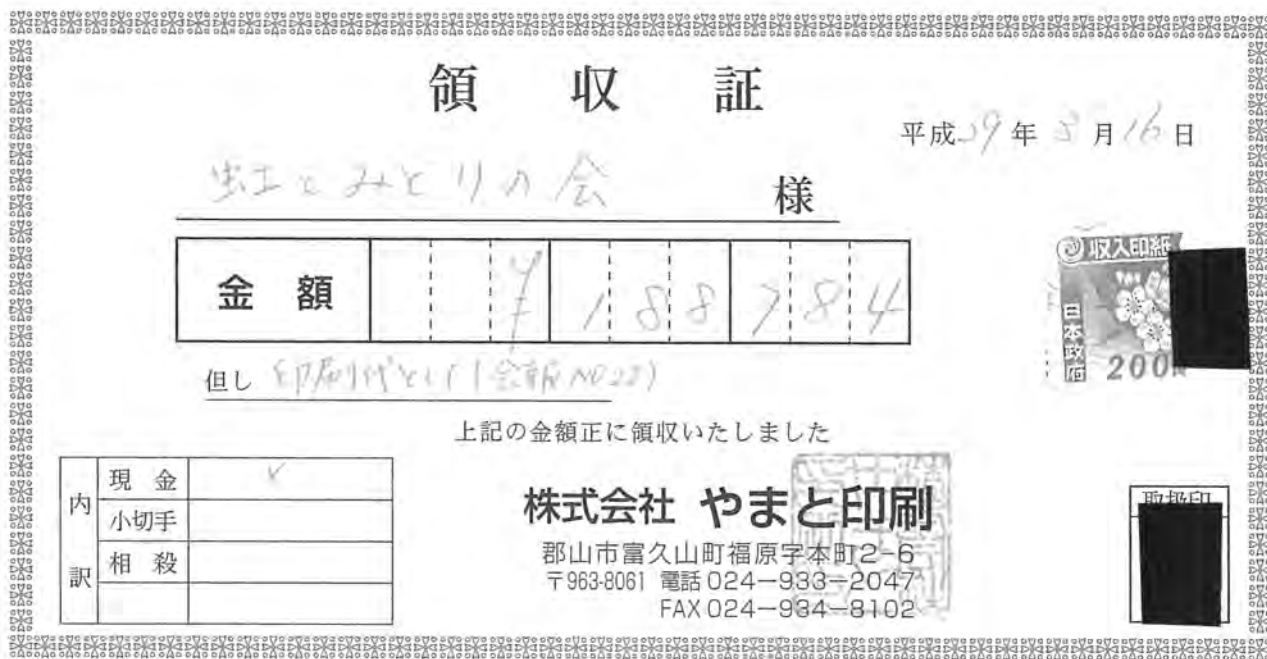 領収証
平成29年3月16日
虹とみどりの会 様
金額 ¥188784
但し 印刷代として(会報NO22)
上記の金額正に領収いたしました
収入印紙
日本政府
200
内訳
現金 ✓
小切手
相殺
株式会社 やまと印刷
郡山市富久山町福原字本町2-6
〒963-8061 電話024-933-2047
FAX 024-934-8102
取扱印